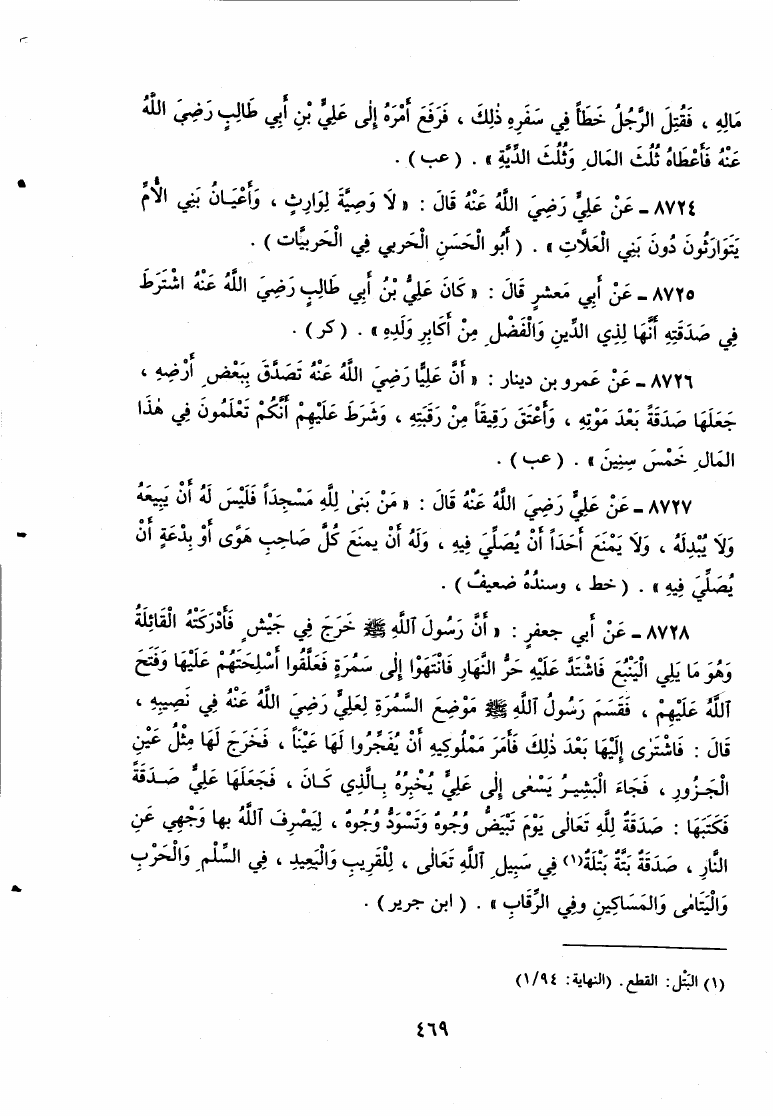 مَالِهِ ، فَقُتِلَ الرَّجُلُ خَطَأً فِي سَفَرِهِ ذٰلِكَ ، فَرَفَعَ أَمْرَهُ إِلٰى عَلِيِّ بْنِ أَبِي طَالِبٍ رَضِيَ اللَّهُ
عَنْهُ فَأَعْطَاهُ ثُلُثَ المَالِ وَثُلُثَ الدِّيَّةِ » . ( عب ) .
٨٧٢٤ ـ عَنْ عَلِيٍّ رَضِيَ اللَّهُ عَنْهُ قَالَ : « لَا وَصِيَّةَ لِوَارِثٍ ، وَأَعْيَـانُ بَنِي الْأُمِّ
يَتَوَارَثُونَ دُونَ بَنِي الْعَلَّاتِ » . ( أَبُو الْحَسَنِ الْحَربي فِي الْحَربيَّات ) .
٨٧٢٥ ـ عَنْ أَبِي مَعشرٍ قَالَ : « كَانَ عَلِيُّ بْنُ أَبِي طَالِبٍ رَضِيَ اللَّهُ عَنْهُ اشْتَرَطَ
فِي صَدَقَتِهِ أَنَّهَا لِذِي الدِّينِ وَالْفَضْلِ مِنْ أَكَابِرِ وَلَدِهِ » . ( كر ) .
٨٧٢٦ ـ عَنْ عَمرِو بن دينار : « أَنَّ عَلِيًّا رَضِيَ اللَّهُ عَنْهُ تَصَدَّقَ بِبَعْضِ أَرْضِهِ ،
جَعَلَهَا صَدَقَةً بَعْدَ مَوْتِهِ ، وَأَعْتَقَ رَقِيقاً مِنْ رَقَبَتِهِ ، وَشَرَطَ عَلَيْهِمْ أَنَّكُمْ تَعْلَمُونَ فِي هٰذَا
المَالِ خَمْسَ سِنِينَ » . ( عب ) .
٨٧٢٧ ـ عَنْ عَلِيٍّ رَضِيَ اللَّهُ عَنْهُ قَالَ : « مَنْ بَنىٰ لِلَّهِ مَسْجِداً فَلَيْسَ لَهُ أَنْ يَبِيعَهُ
وَلَا يُبْدِلَهُ ، وَلَا يَمْنَعَ أَحَداً أَنْ يُصَلِّيَ فِيهِ ، وَلَهُ أَنْ يمنَعَ كُلَّ صَاحِبِ هَوًى أَوْ بِدْعَةٍ أَنْ
يُصَلِّيَ فِيهِ » . ( خط ، وسندُهُ ضعيفٌ ) .
٨٧٢٨ ـ عَنْ أَبِي جعفرٍ : « أَنَّ رَسُولَ ٱللَّهِ ﷺ خَرَجَ فِي جَيْشٍ فَأَدْرَكَتْهُ الْقَائِلَةُ
وَهُوَ مَا يَلِي الْيَنْبُعَ فَاشْتَدَّ عَلَيْهِ حَرُّ النَّهَارِ فَانْتَهَوْا إِلٰى سَمُرَةٍ فَعَلَّقُوا أَسْلِحَتَهُمْ عَلَيْهَا وَفَتَحَ
ٱللَّهُ عَلَيْهِمْ ، فَقَسَمَ رَسُولُ ٱللَّهِ ﷺ مَوْضِعَ السَّمُرَةِ لِعَلِيٍّ رَضِيَ اللَّهُ عَنْهُ فِي نَصِيبِهِ ،
قَالَ : فَاشْتَرٰى إِلَيْهَا بَعْدَ ذٰلِكَ فَأَمَرَ مَمْلُوكِيهِ أَنْ يُفَجِّرُوا لَهَا عَيْناً ، فَخَرَجَ لَهَا مِثْلُ عَيْنِ
الْجَـزُورِ ، فَجَاءَ الْبَشِيـرُ يَسْعٰى إِلٰى عَلِيٍّ يُخْبِرُهُ بِـالَّذِي كَـانَ ، فَجَعَلَهَا عَلِيٌّ صَـدَقَةً
فَكَتَبَهَا : صَدَقَةٌ لِلَّهِ تَعَالٰى يَوْمَ تَبْيَضُّ وُجُوهٌ وَتَسْوَدُّ وُجُوهٌ ، لِيَصْرِفَ ٱللَّهُ بها وَجْهِي عَنِ
النَّارِ ، صَدَقَةٌ بَتَّةٌ بَتْلَةٌ(١) فِي سَبِيلِ ٱللَّهِ تَعَالٰى ، لِلْقَرِيبِ وَالْبَعِيدِ ، فِي السِّلْمِ وَالْحَرْبِ
وَالْيَتَامٰى وَالمَسَاكِينِ وفي الرِّقَابِ » . ( ابن جرير ) .
(١) البَتْل : القطع . (النهاية : ١/٩٤)
٤٦٩